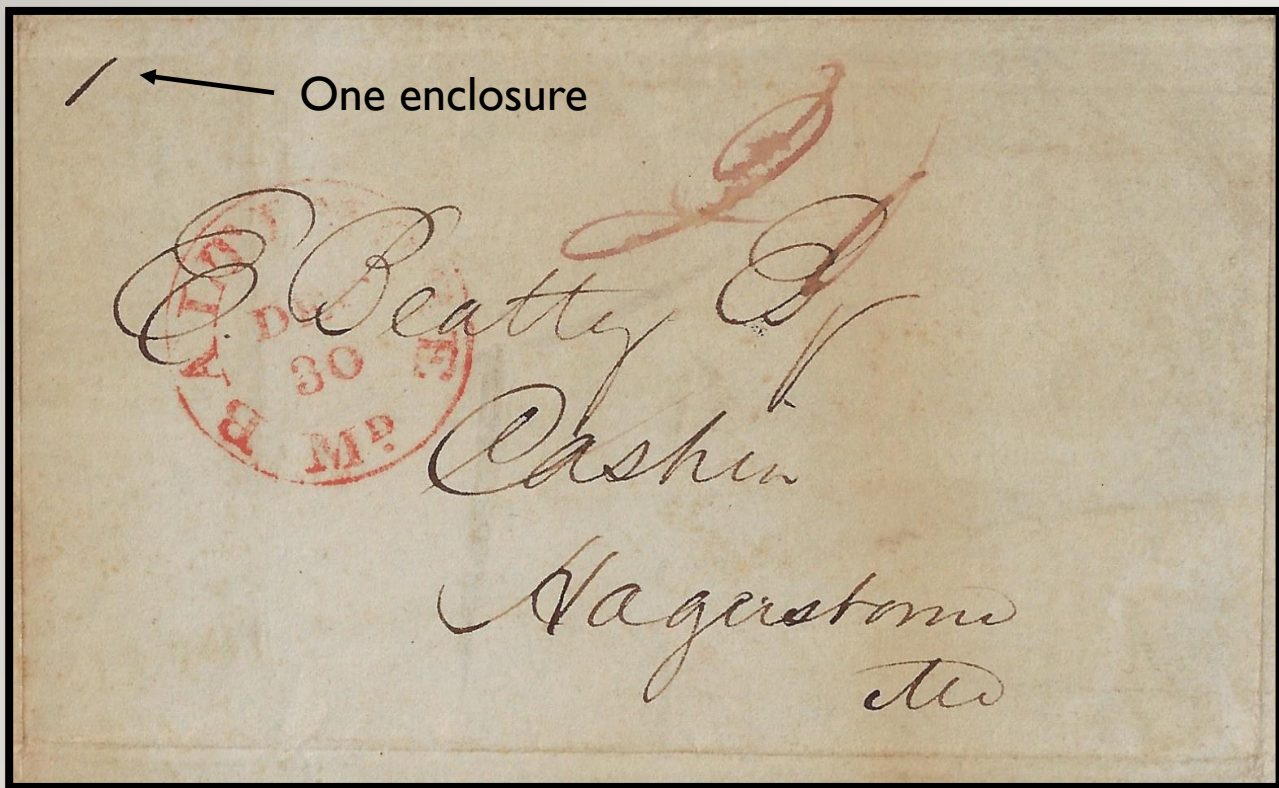 1
One enclosure
BALTIMORE MD
DEC
30
E. Beatty Esq
Cashier
Hagerstown
Md